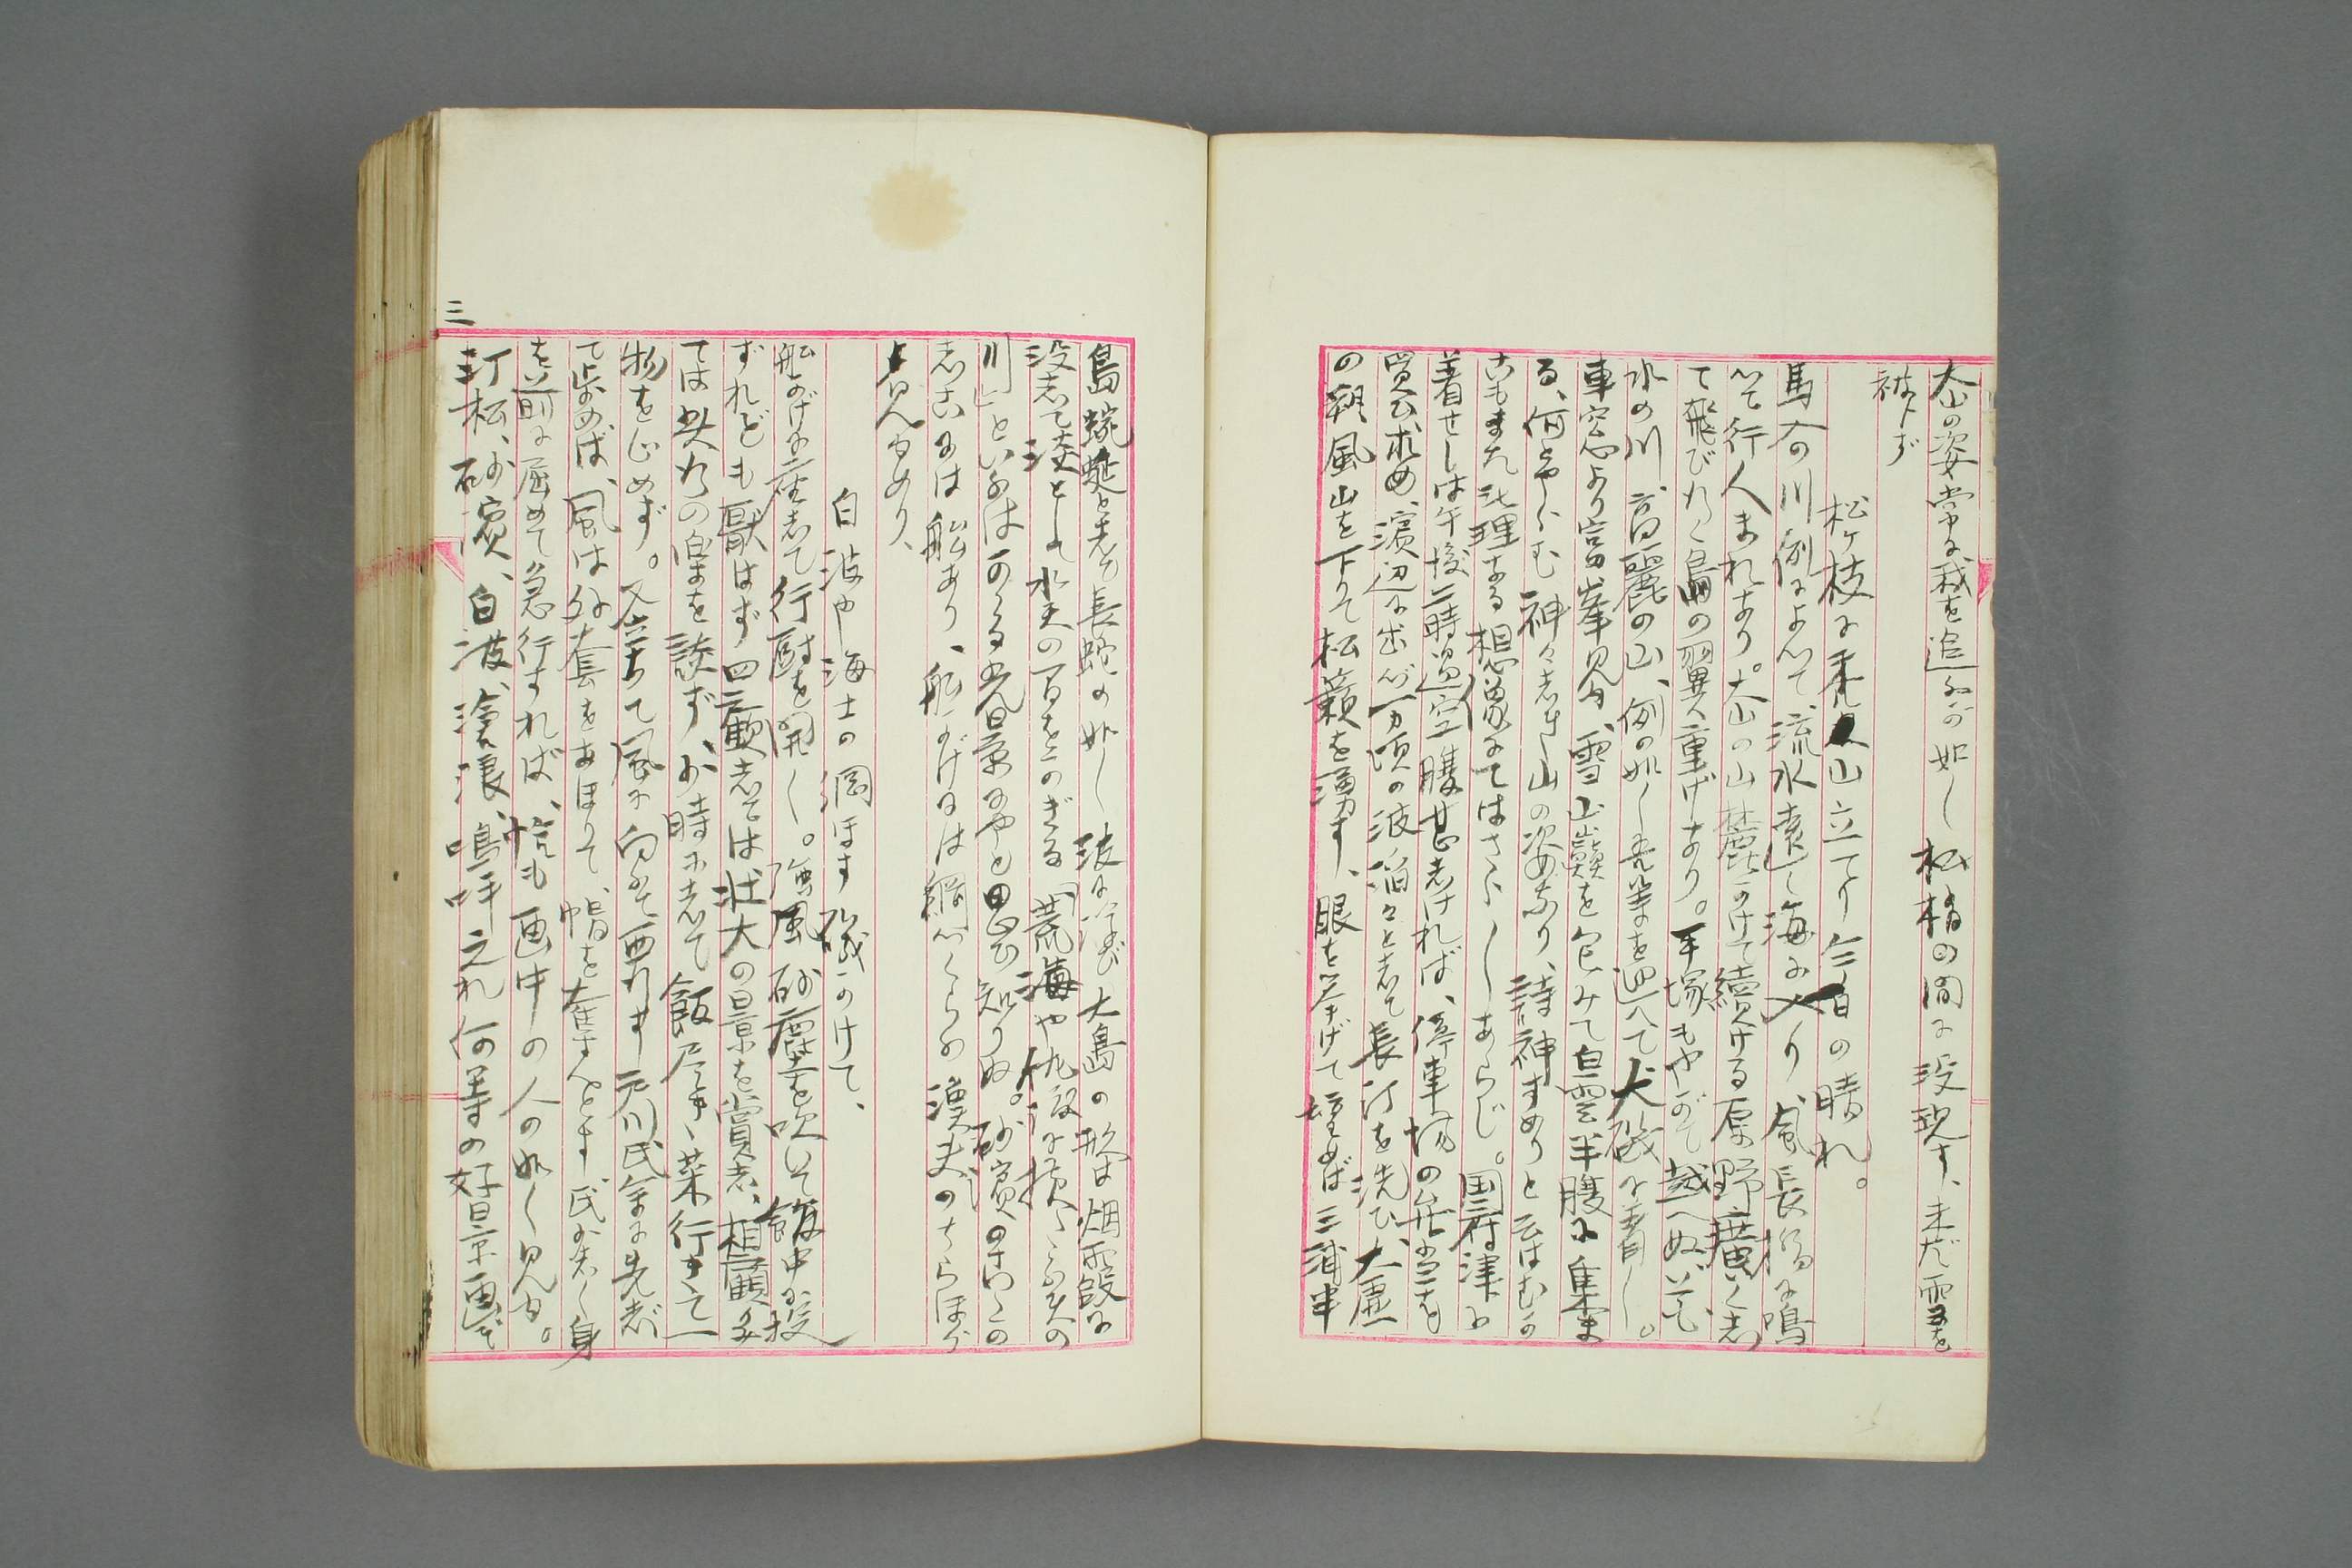 大山の姿常に我を追ふが如し松樹の間に没現す、未だ雪を
被らず
松ヶ枝に大山立てり今日の晴れ。
馬入の川例によつて、流水遠く海に入り、風長橋に鳴
つて行人まれなり。大山の山麓かけて続ける原野広くし
て飛びたく鳥の翼重げなり。平塚もやがて越へぬ花
水の川、高麗の山、例の如く吾等を迎へて大磯に着す。
車窓より富峯見ゆ、雪山巓を包みて白雲半腹に集ま
る、何とやらむ神々しき山の姿なり、詩神すめりと云はむか
こもまた無理なる想像にてはさらさらあらじ。国府津に
着せしは午後二時過空腹甚しければ、停車場の弁当を
買ひ求め、浜辺に出づ万頃の波滔々として長汀を洗ひ、大虚
の朔風山を下りて松籟を湧す、眼を挙げて望めば三浦半
島蜿蜒として長蛇の如く波に浮び大島の形は烟霞に
没して淡として水天の間をかぎる「荒海や佐渡に横たふ天の
川」といふはかゝる光景にやと思ひ知りぬ。砂浜のここ
しこには船あり、船かげには網つくらふ漁夫のちらほら
と見ゆめり、
白波や海士の網ほす磯かけて、
船かげに座して行厨を開く。強風砂塵を吹いて飯中に投
ずれども厭はず四顧しては壮大の景を賞し、相顧み
ては男々の深みを談ず、少時にして飯尽き、菜行きて一
物を止めず。又立ちて風に向ひて西行す元川氏余に先だ
て歩めば、風は外套をあほりて、帽を奪はんとす氏少しく身
を前に屈めて急行すれば、恰も画中の人の如く見ゆ。
汀松、砂浜、白波、滄浪、嗚呼之れ何等の好景画ぞ
三